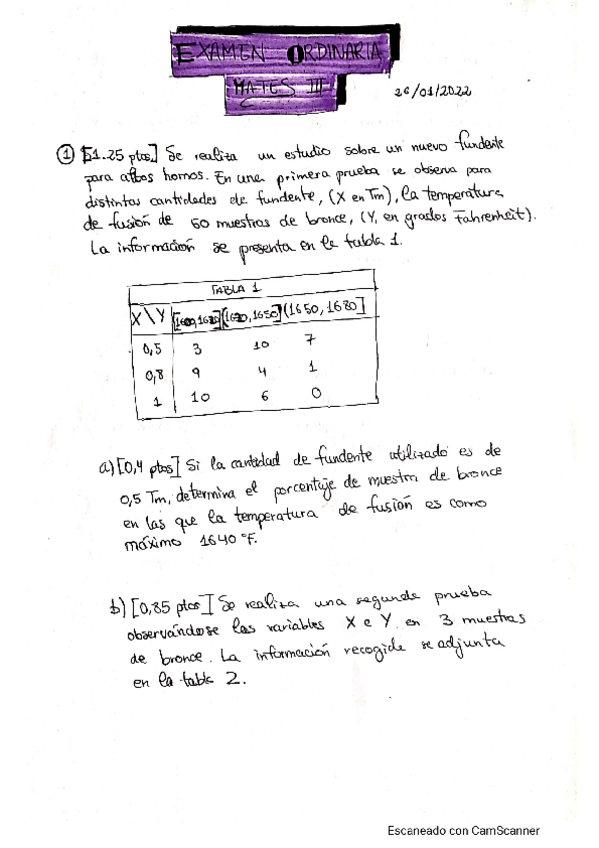 EXAMEN ORDINARIA
MATES III
26/01/2022
① [1.25 ptos] Se realiza un estudio sobre un nuevo fundente
para altos hornos. En una primera prueba se observa para
distintas cantidades de fundente, (X en Tm), la temperatura
de fusión de 50 muestras de bronce, (Y, en grados Fahrenheit).
La información se presenta en la tabla 1.
TABLA 1
X \ Y [1600,1620] (1620,1650] (1650,1680]
0,5 3 10 7
0,8 9 4 1
1 10 6 0
a) [0,4 ptos] Si la cantidad de fundente utilizado es de
0,5 Tm, determina el porcentaje de muestra de bronce
en las que la temperatura de fusión es como
máximo 1640 °F.
b) [0,85 ptos] Se realiza una segunda prueba
observándose las variables X e Y en 3 muestras
de bronce. La información recogida se adjunta
en la tabla 2.
Escaneado con CamScanner